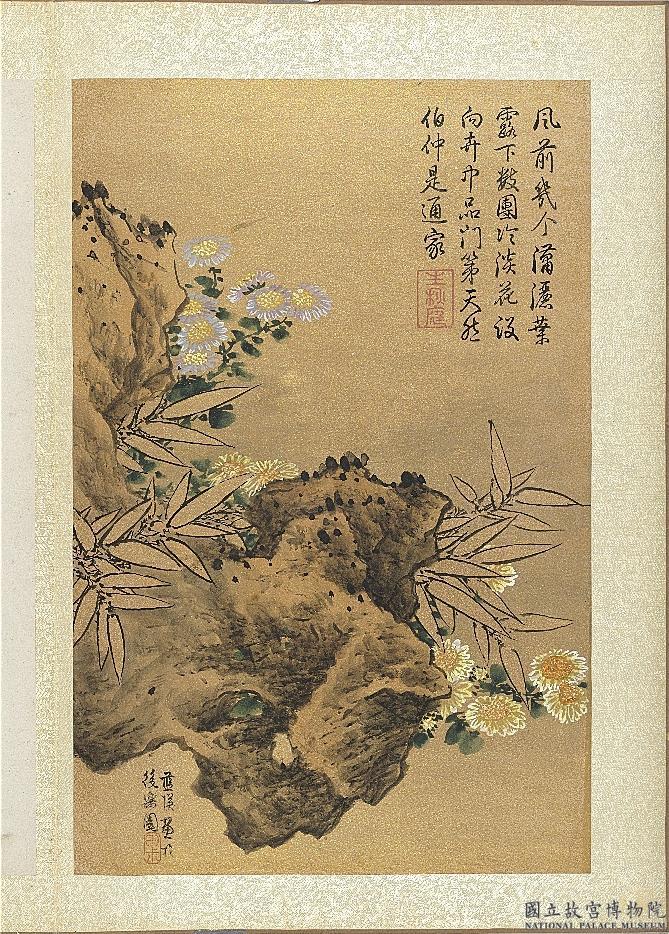 風前幾个瀟灑葉
露下數團冷淡花設
向卉中品門第天然
伯仲是通家
王秋庭
藍瑛畫於
後樂園
國立故宮博物院
NATIONAL PALACE MUSEUM